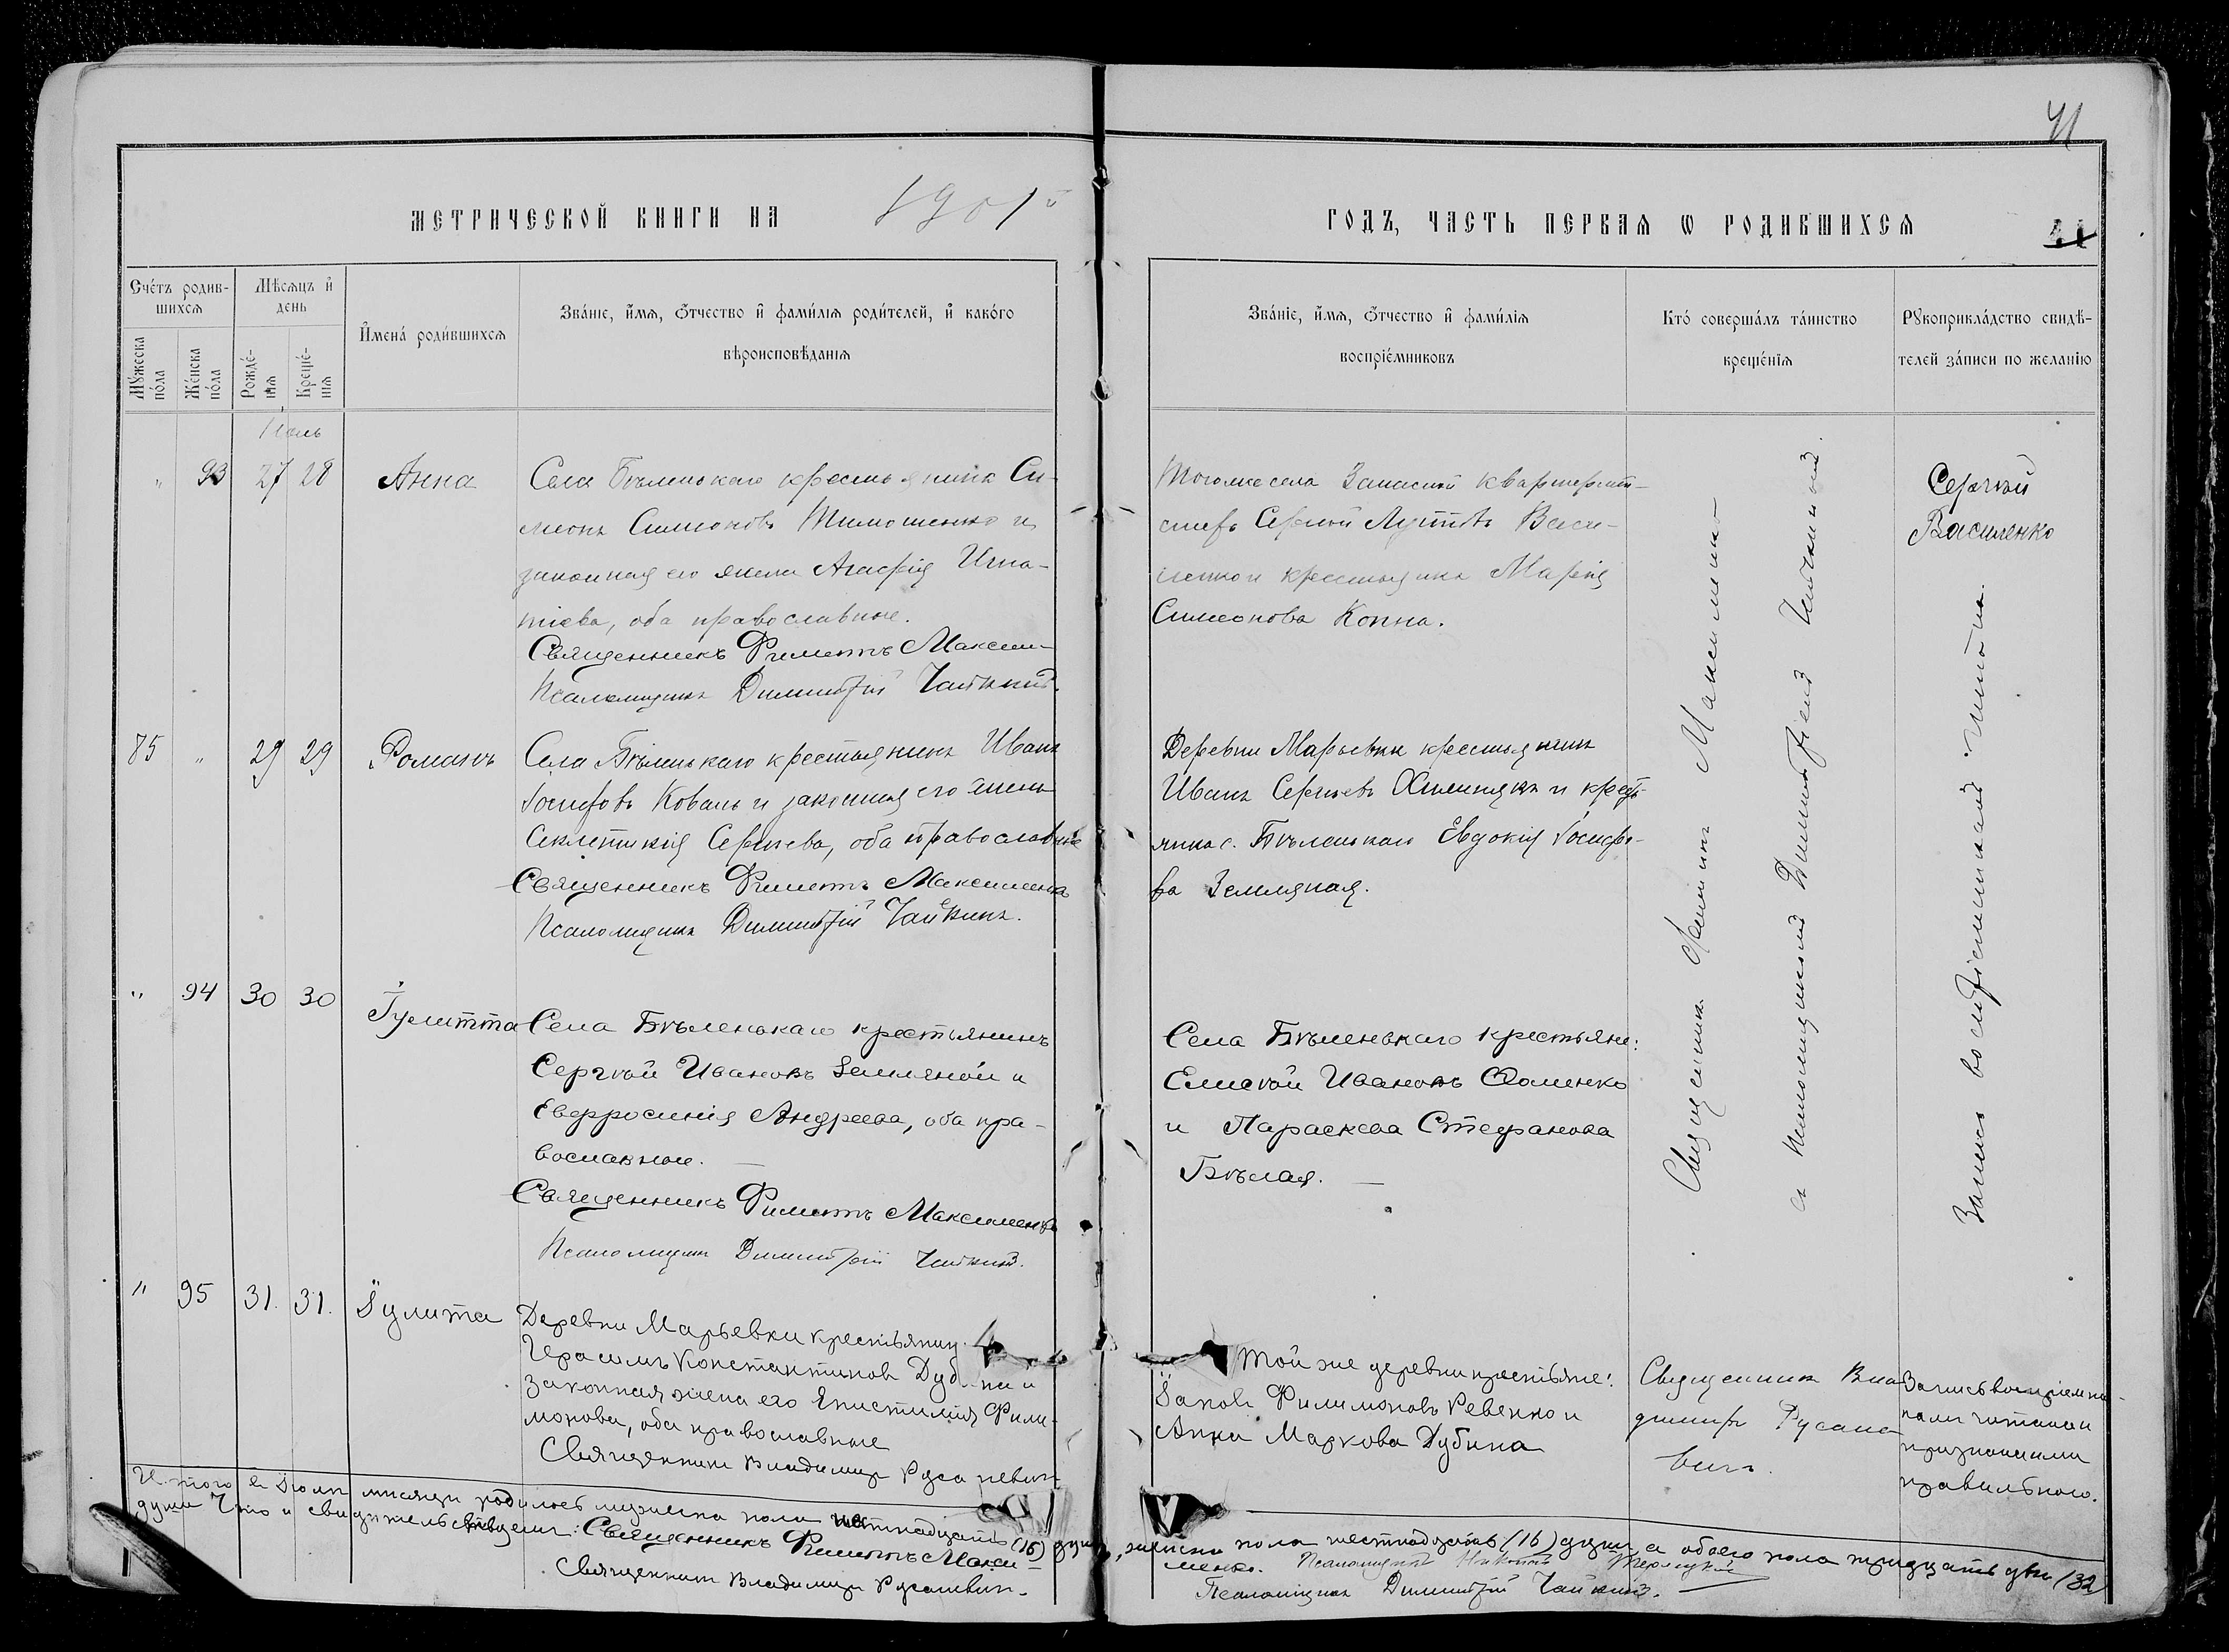 41
МЕТРИЧЕСКОЙ КНИГИ НА 1901й ГОДЪ, ЧАСТЬ ПЕРВАЯ Ѡ РОДИВШИХСЯ
41
Счетъ родившихся
Мужеска пола
Женска пола
Мѣсяцъ и день
Рожденія
Крещенія
Имена родившихся
Званіе, имя, отчество и фамилія родителей, и какого
вѣроисповѣданія
Званіе, имя, отчество и фамилія
воспріемниковъ
Кто совершалъ таинство
крещенія
Рукоприкладство свидѣ-
телей записи по желанію
Іюль
" 93 27 28 Анна
Села Бѣленькаго крестьянинъ Си-
меонъ Симеоновъ Тимошенко и
законная его жена Агафія Игна-
тіева, оба православные.
Священникъ Филиппъ Максим-
Псаломщикъ Димитрій Чайкинъ.
Тогоже села Запасной квартирми-
стръ Сергѣй Васи-
ленко и крестьянка Марія
Симеонова Копна.
Сергѣй
Василенко
85 " 29 29 Романъ
Села Бѣленькаго крестьянинъ Иванъ
Іосифовъ Коваль и законная его жена
Секлетикія Сергіева, оба православные
Священникъ Филиппъ Максименко
Псаломщикъ Димитрій Чайкинъ.
Деревни Марьевки крестьянинъ
Иванъ Сергіевъ и кресть-
янка с. Бѣленькаго Евдокія Іосифо-
ва Земляная.
" 94 30 30 Іулитта
Села Бѣленькаго крестьянинъ
Сергѣй Ивановъ Земляной и
Евфросинія Андреева, оба пра-
вославные.
Священникъ Филиппъ Максименко
Псаломщикъ Димитрій Чайкинъ.
Села Бѣленькаго крестьяне:
Елисѣй Ивановъ Фоменко
и Параскева Стефанова
Бѣлая.
Священникъ Филиппъ Максименко
съ псаломщикомъ Димитріемъ Чайкинымъ.
Запись воспріемникамъ читана.
" 95 31. 31. Іулита
Деревни Марьевки крестьянин.
Герасимъ Константинов Дубина и
законная жена его Епистимія Фили-
монова, оба православные
Священникъ Владимиръ Русаневич
Той же деревни крестьяне:
Іаковъ Филимоновъ Ревенко и
Анна Маркова Дубина
Священникъ Вла-
димиръ Русане
вичъ.
Запись воспріемни-
камъ читана и
признана ими
правильною.
Итого въ Іюлѣ мѣсяцѣ родилось мужеска пола шестнадцать (16) душъ, женска пола шестнадцать (16) душъ, а обоего пола тридцать двѣ (32)
души Что и свидѣтельствуемъ: Священникъ Филиппъ Макси-
менко. Псаломщикъ Никонъ
Священникъ Владимиръ Русаневич.
Псаломщикъ Димитрій Чайкинъ.